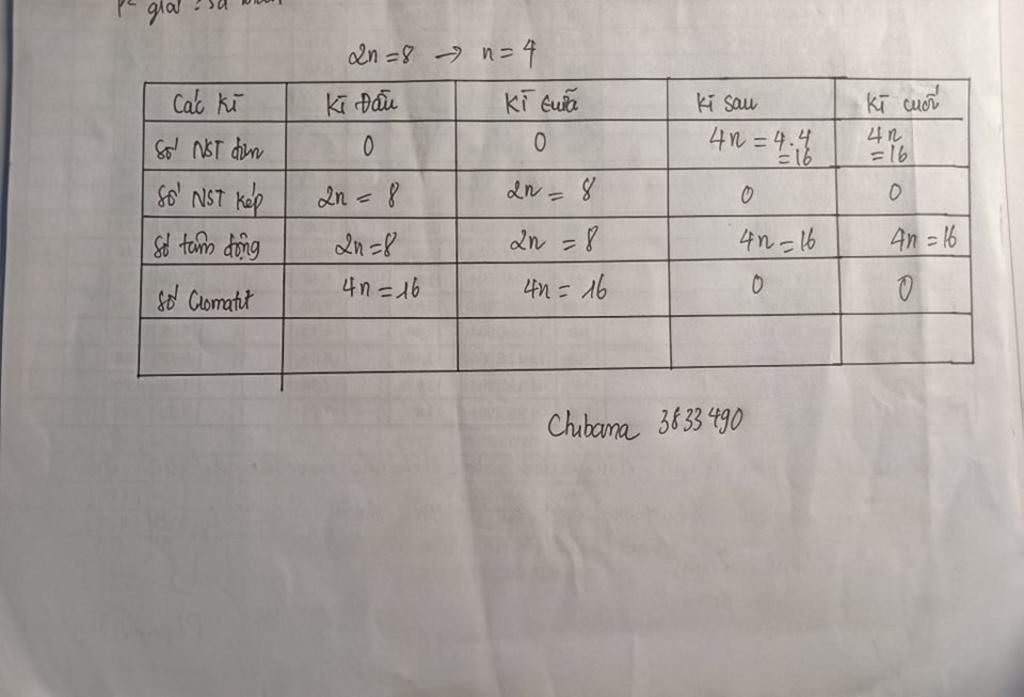 giải :
2n = 8 → n = 4
Các kì Kì Đầu Kì Giữa Kì sau Kì cuối
Số NST đơn 0 0 4n = 4.4 = 16 4n = 16
Số NST kép 2n = 8 2n = 8 0 0
Số tâm động 2n = 8 2n = 8 4n = 16 4n = 16
Số Cromatit 4n = 16 4n = 16 0 0
Chibana 3833490